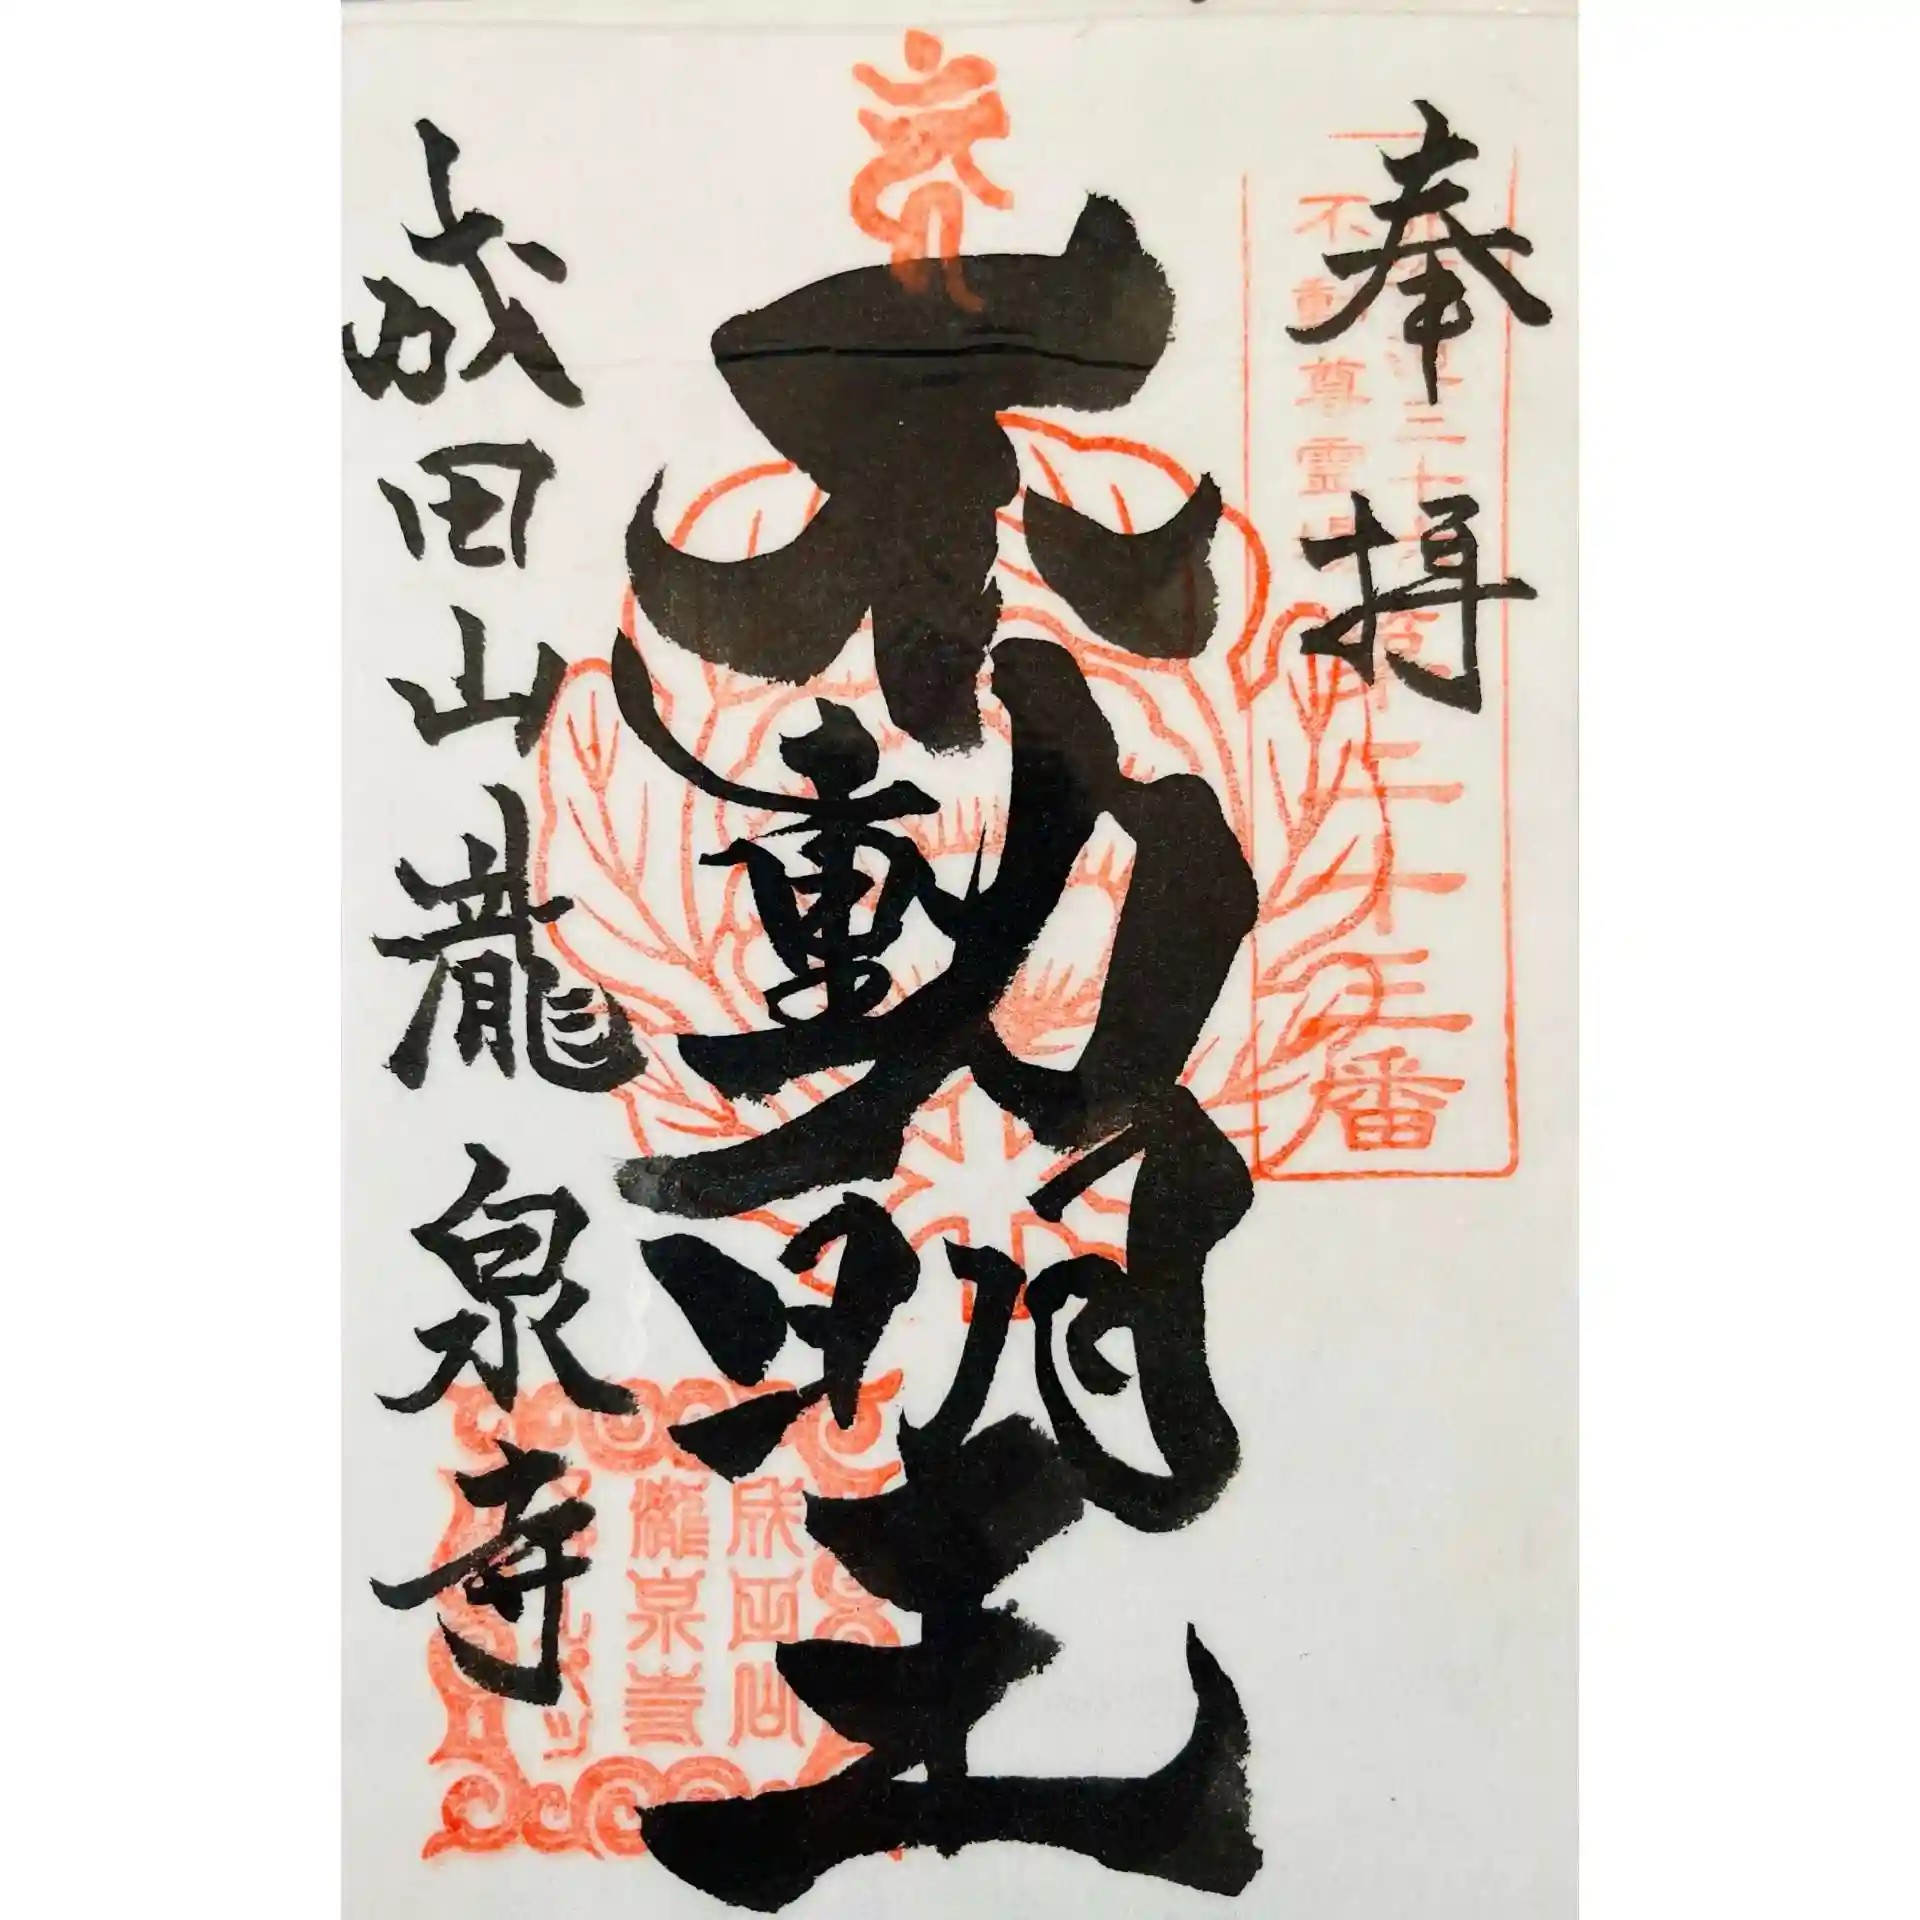 奉拝
不動尊霊場
二十五番
不動明王
成田山龍泉寺
成田山
瀧泉寺